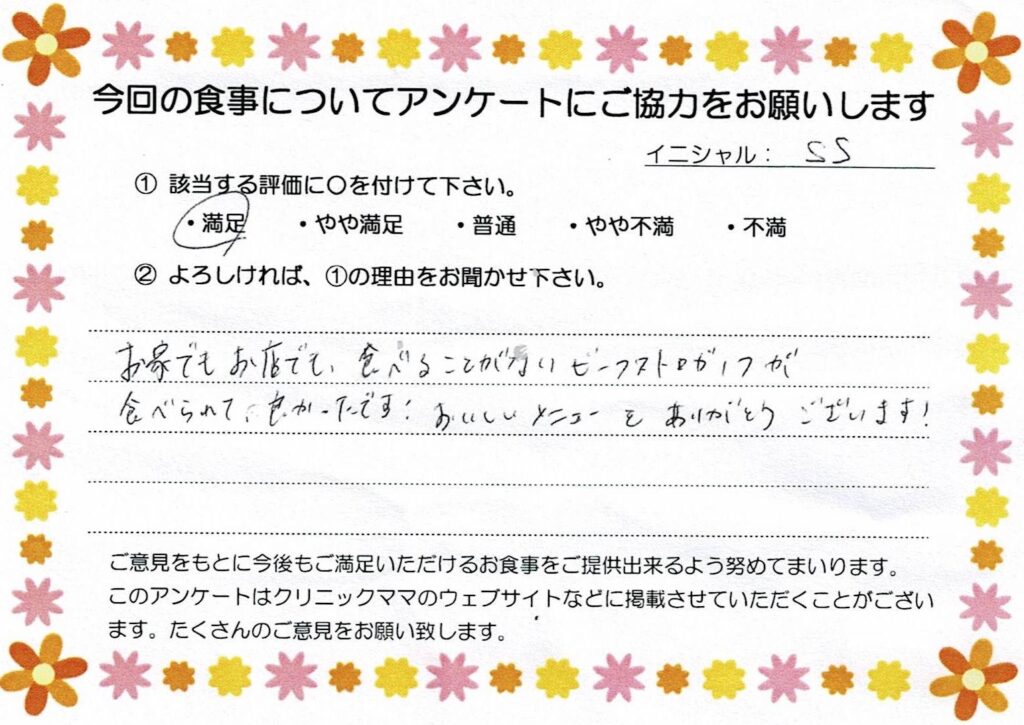 今回の食事についてアンケートにご協力をお願いします
イニシャル： SS
① 該当する評価に〇を付けて下さい。
・満足 ・やや満足 ・普通 ・やや不満 ・不満
② よろしければ、①の理由をお聞かせ下さい。
お家でもお店でも、食べることがないビーフストロガノフが
食べられて、良かったです！おいしいメニューをありがとうございます！
ご意見をもとに今後もご満足いただけるお食事をご提供出来るよう努めてまいります。
このアンケートはクリニックママのウェブサイトなどに掲載させていただくことがござい
ます。たくさんのご意見をお願い致します。